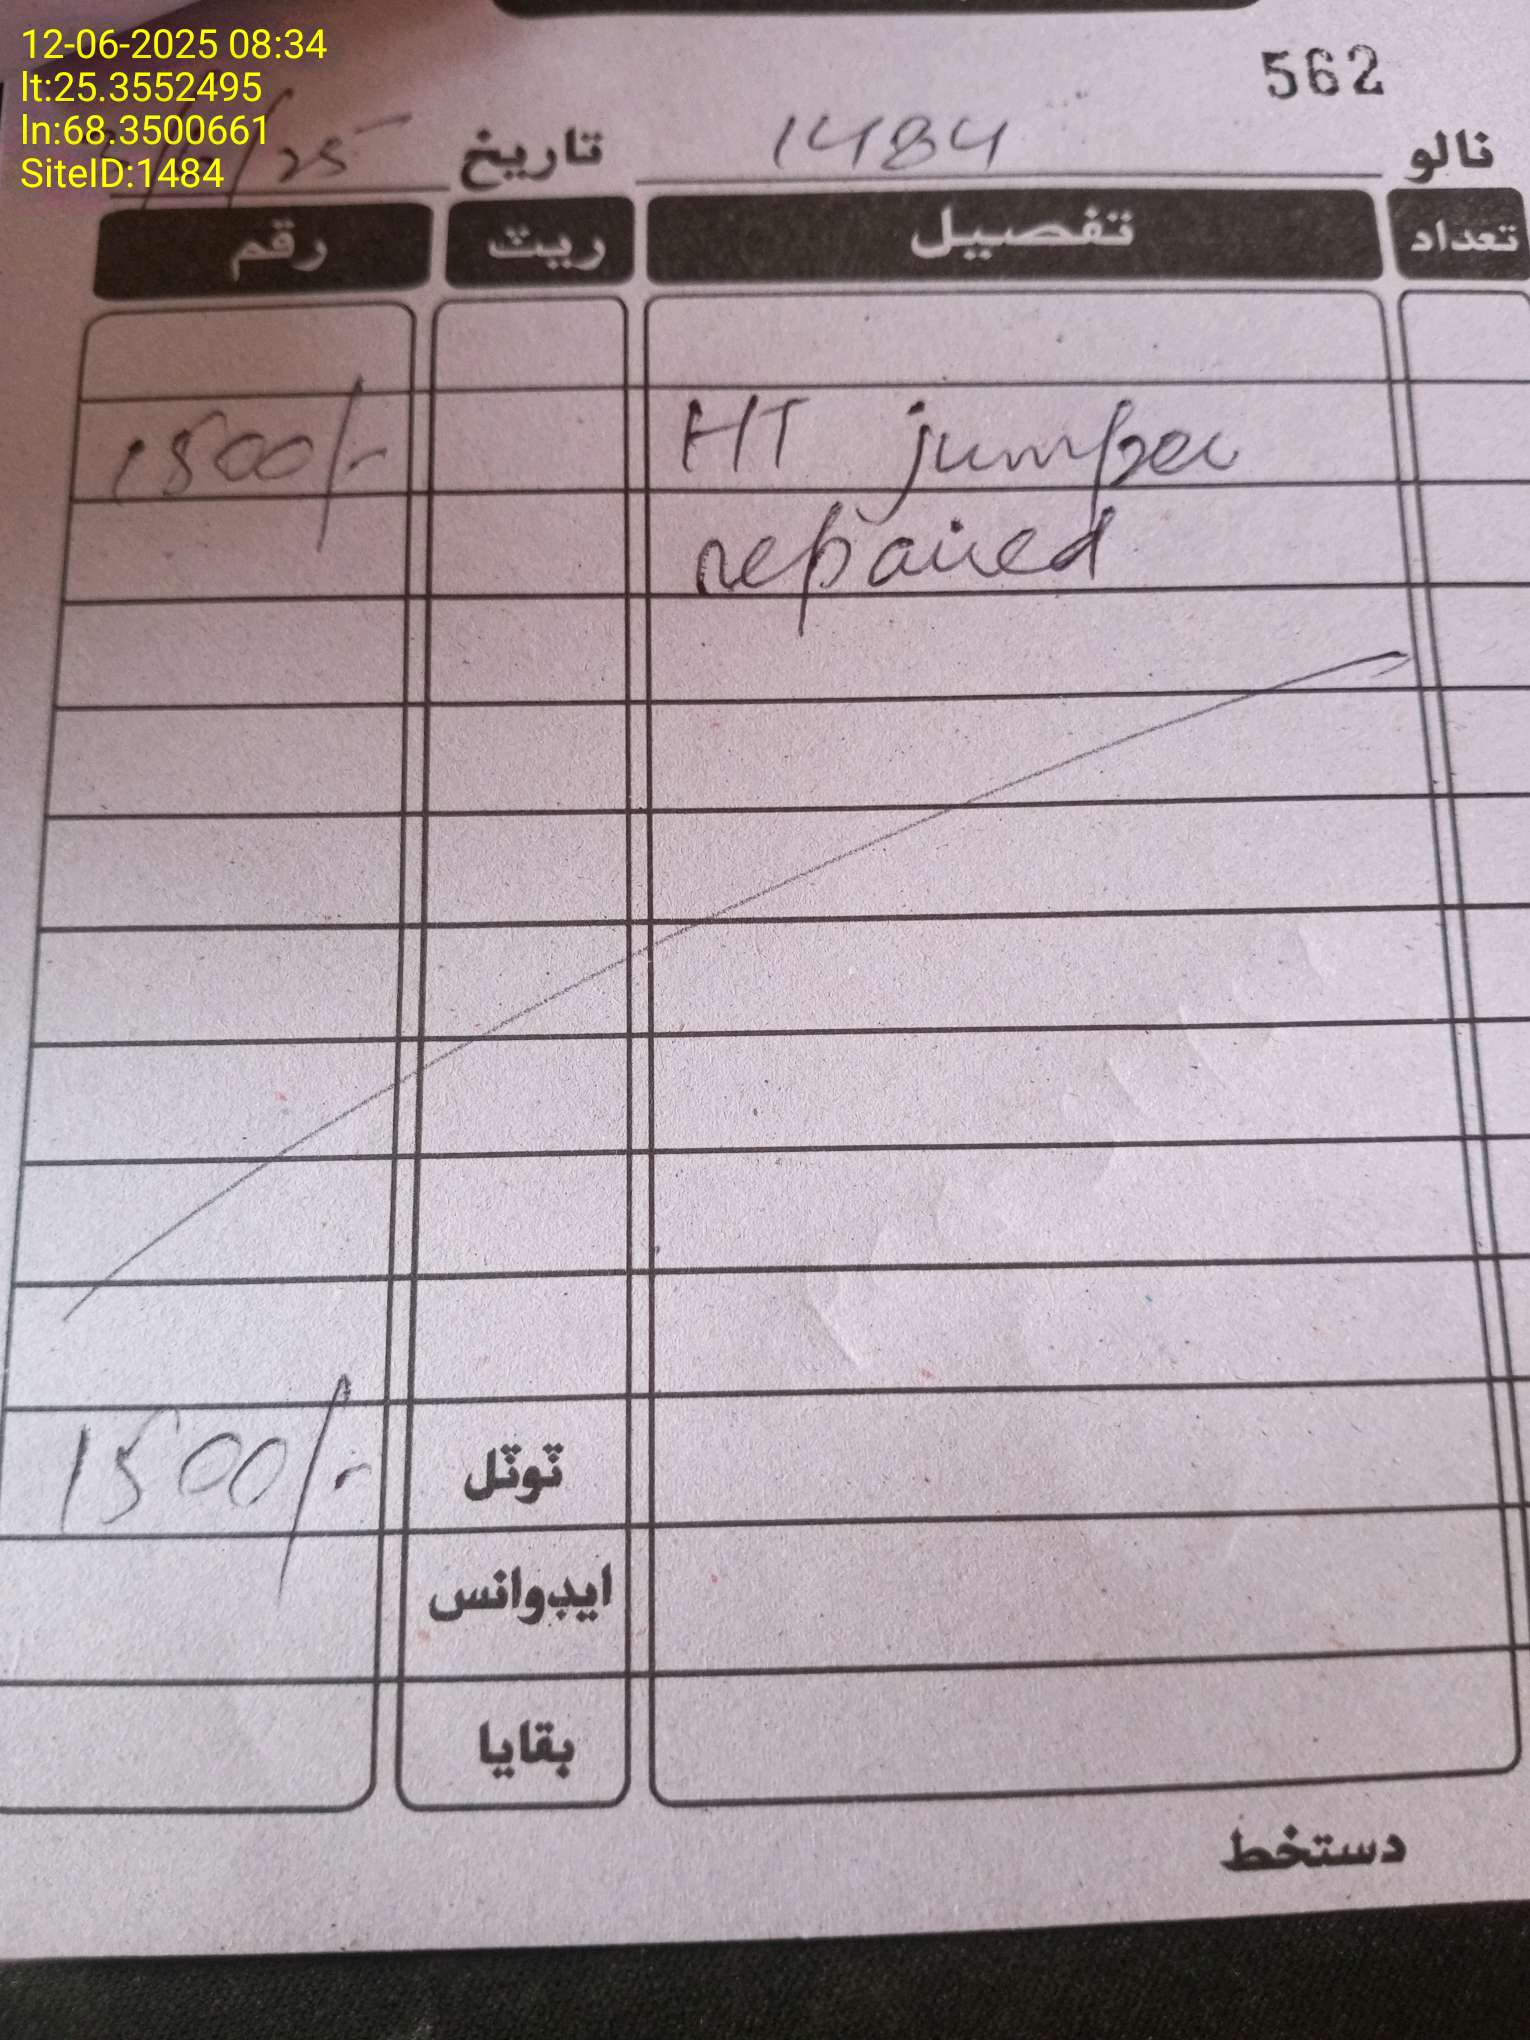 12-06-2025 08:34
lt:25.3552495
ln:68.3500661
SiteID:1484
562
نالو 1484 تاريخ /25
تعداد تفصيل ريٽ رقم
HT jumper 1500/-
repaired
ٽوٽل 1500/-
ايڊوانس
بقايا
دستخط